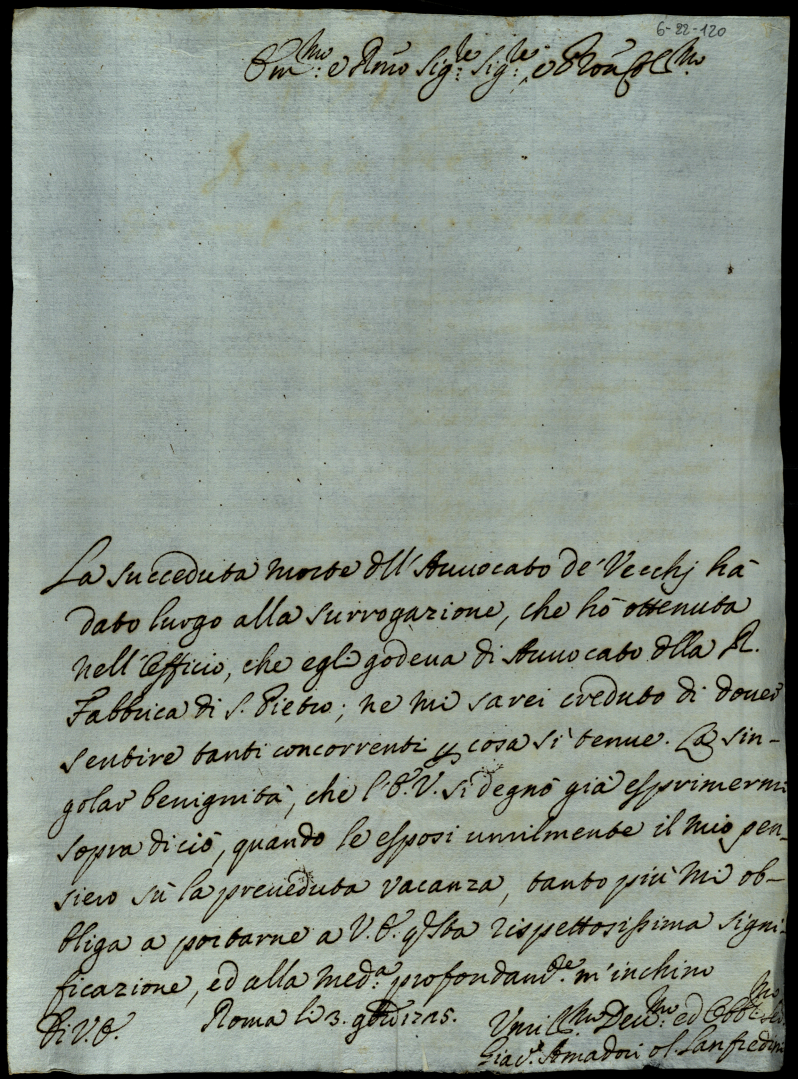 6-22-120
Em.mo e Rmo Sig.re Sig.re, e Pron Col.mo
La succeduta morte dell'Avvocato de' Vecchj hà
dato luogo alla surrogazione, che hò ottenuta
nell'Officio, che egli godeva di Avvocato della R.
Fabbrica di S. Pietro; ne mi sarei creduto di dover
sentire tanti concorrenti p cosa sì tenue. La sin-
golar benignità, che l'E.V. si degnò già esprimermi
sopra di ciò, quando le esposi umilmente il mio pen-
siero sù la preveduta vacanza, tanto più mi ob-
bliga a portarne a V.E. questa rispettosissima signi-
ficazione, ed alla med.a profondam.te m'inchino
Di V.E. Roma li 3. 1725.
Umil.mo Dev.mo ed Obbl.mo
Giac. Amadori ol. Lanfredini